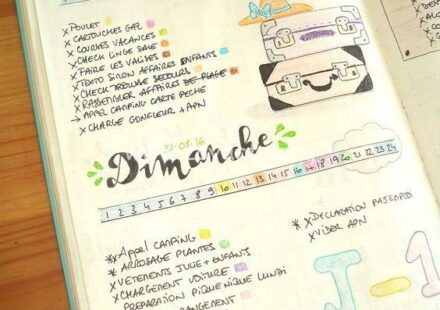 x POULET
x CARTOUCHES GAZ
x COURSES VACANCES
x CHECK LINGE SALE
x FAIRE LES VALISES
x TOOTO SIRON AFFAIRES ENFANTS
x CHECK TROUSSE SECOURS
x RASSEMBLER AFFAIRES DE PLAGE
→ APPEL CAMPING CARTE PECHE
x CHARGE GONFLEUR + APN
21-08-16
Dimanche
1 2 3 4 5 6 7 8 9 10 11 12 13 14 15 16 17 18 19 20 21 22 23 24
*x Appel CAMPING
* ARROSAGE PLANTES
x VETEMENTS JULIE + ENFANTS
x CHARGEMENT VOITURE
PREPARATION PIQUE NIQUE LUNDI
RANGEMENT
* x DECLARATION
x VIDER APN
J-1